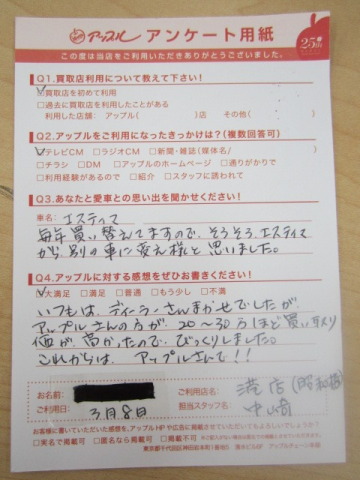 アップル アンケート用紙
25th
この度は当店をご利用いただきありがとうございました。
Q1.買取店利用について教えて下さい!
☑買取店を初めて利用
□過去に買取店を利用したことがある
利用した店舗: アップル( )店 その他( )
Q2.アップルをご利用になったきっかけは?(複数回答可)
☑テレビCM □ラジオCM □新聞・雑誌(媒体名/ )
□チラシ □DM □アップルのホームページ □通りがかりで
□利用経験があるので □紹介 □スタッフに誘われて
Q3.あなたと愛車との思い出を聞かせください!
車名: エスティマ
毎年買い替えてますので、そろそろエスティマ
から別の車に変え様と思いました。
Q4.アップルに対する感想をぜひお書きください!
☑大満足 □満足 □普通 □もう少し □不満
いつもは、ディーラーさんまかせでしたが
アップルさんの方が、20〜30万ほど買い取り
価が、高かったので、びっくりしました。
これからは、アップルさんで!!
お名前:
ご利用日: 3月8日
ご利用店名: 港店(昭和橋)
担当スタッフ名: 中崎
お客様に書いていただいた感想を、アップルHPや広告に掲載いたしてもよろしいでしょうか?
□実名で掲載可 □匿名なら掲載可 □掲載不可